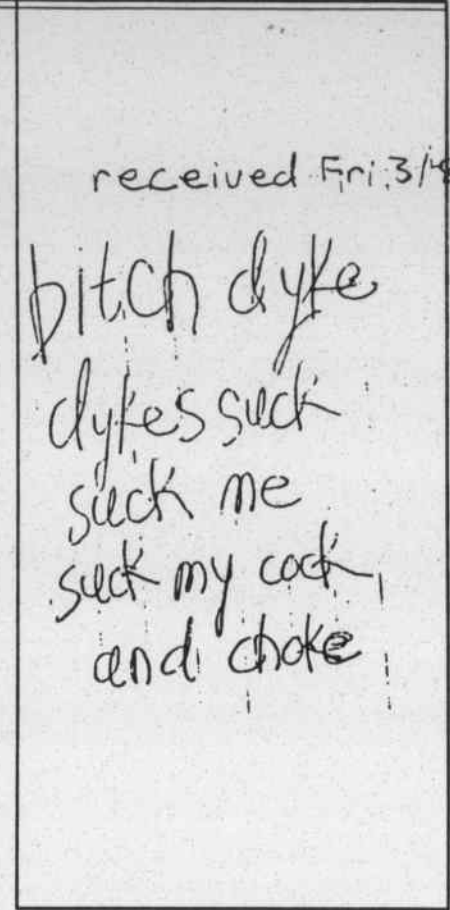 received Fri. 3/18
bitch dyke
dykes suck
suck me
suck my cock
and choke